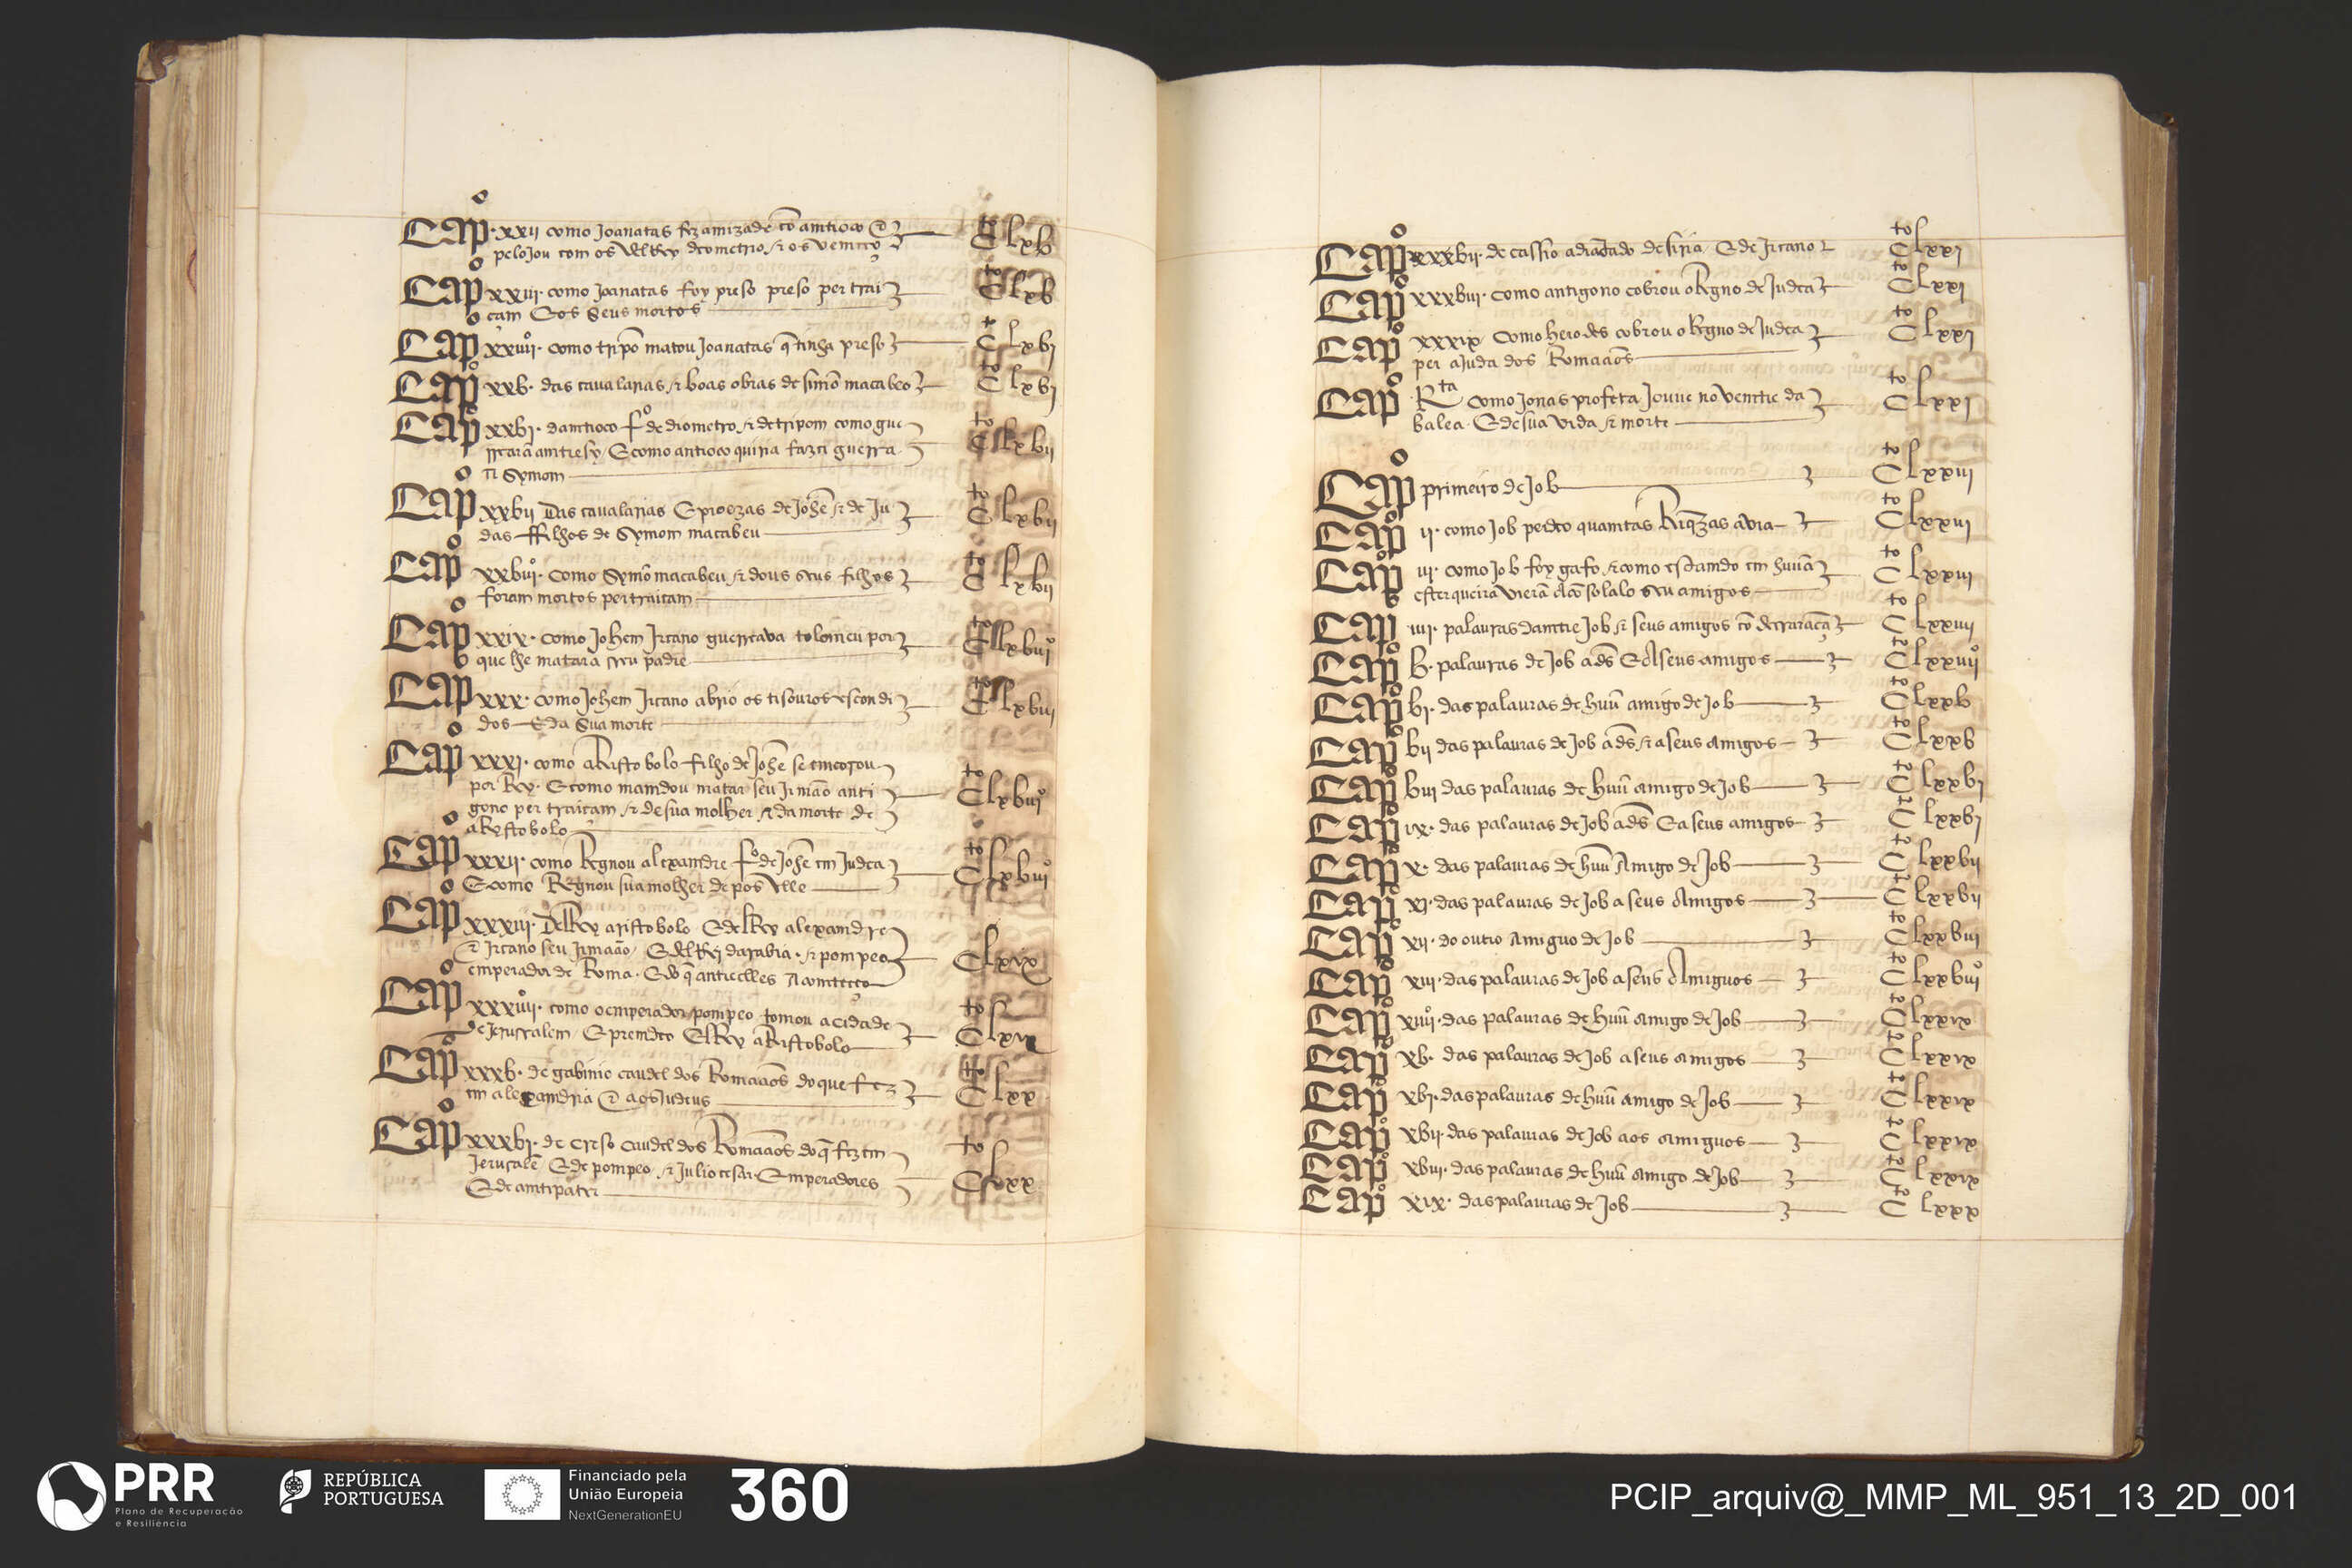 CAPº xxii como Joanatas fez amizade cõ amtioco e Cto lxb
pelejou com os delRey demetrio, e os vemceo
CAPº xxiii· como Joanatas foy preso preso per trai Cto lxb
çam E os seus mortos
CAPº xxiiiiº· como tripõ matou Joanatas q̃ tinha preso Cto lxbi
CAPº xxb· das cavalarias, e boas obras de simõ macabeo Cto lxbi
CAPº xxbi· damtioco fº de diometro, e de tripom como gue Cto lxbii
rrearã amtre sy, E como antioco queria fazer guerra
a Symom
CAPº xxbii Das cavalarias E proezas de Johẽ e de Ju Cto lxbii
das ffilhos de Symom macabeu
CAPº xxbiiiº· Como Symõ macabeu, e dous seus filhos Cto lxbii
foram mortos per traiçam
CAPº xxix· como Johem Ircano guerreava tolomeu por Cto lxbiiiº
que lhe matara seu padre
CAPº xxx· como Johem Ircano abrio os tisouros escondi Cto lxbiii
dos E da sua morte
CAPº xxxi· como aRistobolo filho de Johẽ se emcoroou
por Rey· E como mamdou matar seu Irmão anti Cto lxbiiiº
gono per traiçam, e de sua molher, e da morte de
aRestobolo
CAPº xxxii· como Regnou alexamdre fº de Johẽ em Judea Cto lxbiiiº
E como Regnou sua molher depos elle
CAPº xxxiii· DelRey aristobolo E delRey alexamdre
e Ircano seu Irmaão, E delRei darabia· e pompeo Clxix
emperador de Roma· E do q̃ antre elles acomteceo
CAPº xxxiiiiº· como o emperador pompeo tomou a cidade Cto lxix
de Jerusalem, E premdeo ElRey aRistobolo
CAPº xxxb· de gabinio caudel dos Romaãos do que fez Cto lxx
em alexamdria e aos Judeus
CAPº xxxbi· de creso caudel dos Romaãos do q̃ fez em Cto
Jerusalẽ E de pompeo, e Julio cesar Emperadores Clxx
E de amtipater
CAPº xxxbii· de cassio adiãtado de siria, E de Ircano Cto lxxi
CAPº xxxbiii· como antigono cobrou o Regno de Judea Cto lxxi
CAPº xxxix como herodes cobrou o Regno de Judea Cto lxxi
per ajuda dos Romaãos
CAPº Rta como Jonas profeta Jouve no vemtre da Cto lxxi
balea· E de sua vida e morte
CAPº primeiro de Job Cto lxxiii
CAPº ii· como Job perdeo quamtas Riq̃zas avia Cto lxxiii
CAPº iii· como Job foy gafo, e como estamdo em huũa Cto lxxiii
esterqueira vierã a cõsolalo seu amigos
CAPº iiii· palavras damtre Job e seus amigos cõ decraraçã Cto lxxiiii
CAPº b· palavras de Job a ds̃ E A seus amigos Cto lxxiiiiº
CAPº bi· das palavras de huũ amigo de Job Cto lxxb
CAPº bii das palavras de Job a ds̃, e a seus amigos Cto lxxb
CAPº biii das palavras de huũ amigo de Job Cto lxxbi
CAPº ix· das palavras de Job a ds̃ E a seus amigos Cto lxxbi
CAPº x· das palavras de huũ Amigo de Job Cto lxxbii
CAPº xi· das palavras de Job a seus Amigos Cto lxxbii
CAPº xii· do outro Amiguo de Job Cto lxxbiii
CAPº xiii· das palavras de Job a seus Amiguos Cto lxxbiiiº
CAPº xiiiiº· das palavras de huũ amigo de Job Cto lxxix
CAPº xb· das palavras de Job a seus amigos Cto lxxix
CAPº xbi· das palavras de huũ amigo de Job Cto lxxix
CAPº xbii· das palavras de Job aos amiguos Cto lxxix
CAPº xbiii· das palavras de huũ amigo de Job Cto lxxix
CAPº xix· das palavras de Job Cto lxxx
PRR
Plano de Recuperação
e Resiliência
REPÚBLICA
PORTUGUESA
Financiado pela
União Europeia
NextGenerationEU
360
PCIP_arquiv@_MMP_ML_951_13_2D_001